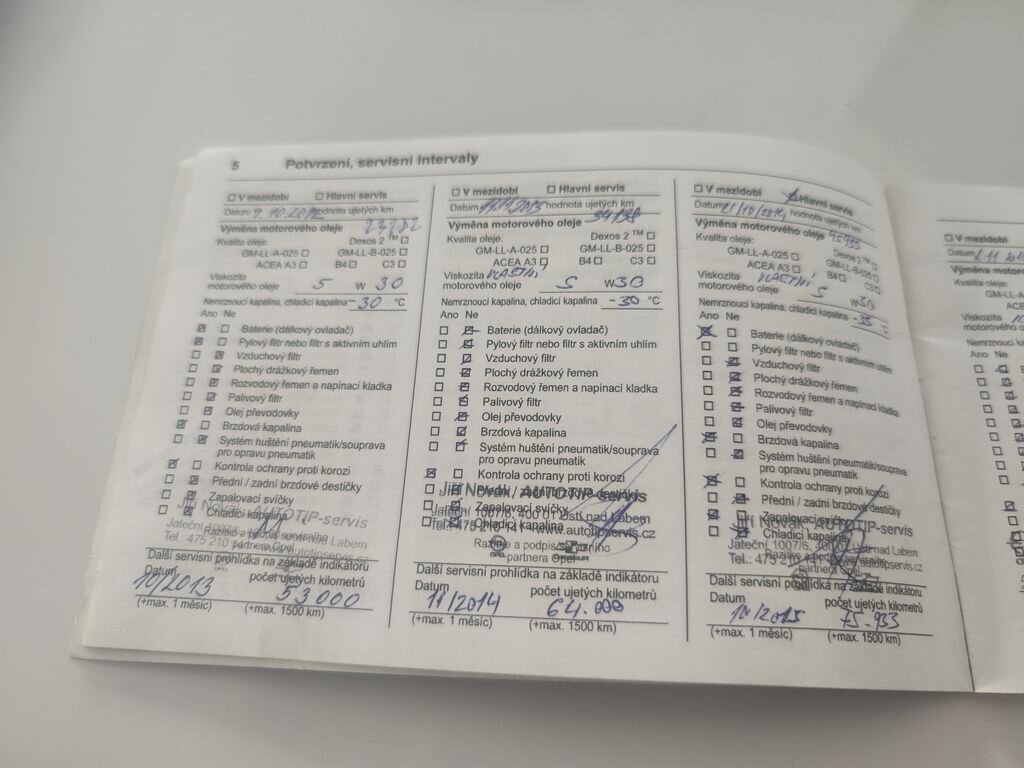 5 Potvrzení, servisní intervaly
☐ V mezidobí ☐ Hlavní servis
Datum 9.10.2012 hodnota ujetých km
Výměna motorového oleje
Kvalita oleje: Dexos 2 ™ ☐
GM-LL-A-025 ☐ GM-LL-B-025 ☐
ACEA A3 ☐ B4 ☐ C3 ☐
Viskozita
motorového oleje 5 W 30
Nemrznoucí kapalina, chladicí kapalina -30 °C
Ano Ne
Baterie (dálkový ovladač)
Pylový filtr nebo filtr s aktivním uhlím
Vzduchový filtr
Plochý drážkový řemen
Rozvodový řemen a napínací kladka
Palivový filtr
Olej převodovky
Brzdová kapalina
Systém huštění pneumatik/souprava
pro opravu pneumatik
Kontrola ochrany proti korozi
Přední / zadní brzdové destičky
Zapalovací svíčky
Chladicí kapalina
Jiří Novák, AUTOTIP-servis
Razítko a podpis servisního
partnera Opel
Další servisní prohlídka na základě indikátoru
Datum počet ujetých kilometrů
10/2013 53 000
(+max. 1 měsíc) (+max. 1500 km)
☐ V mezidobí ☐ Hlavní servis
Datum hodnota ujetých km
Výměna motorového oleje
Kvalita oleje: Dexos 2 ™ ☐
GM-LL-A-025 ☐ GM-LL-B-025 ☐
ACEA A3 ☐ B4 ☐ C3 ☐
Viskozita VLASTNÍ
motorového oleje 5 W 30
Nemrznoucí kapalina, chladicí kapalina -30 °C
Ano Ne
Baterie (dálkový ovladač)
Pylový filtr nebo filtr s aktivním uhlím
Vzduchový filtr
Plochý drážkový řemen
Rozvodový řemen a napínací kladka
Palivový filtr
Olej převodovky
Brzdová kapalina
Systém huštění pneumatik/souprava
pro opravu pneumatik
Kontrola ochrany proti korozi
Jiří Novák, AUTOTIP-servis
Zapalovací svíčky
Jateční 1007/6, 400 01 Ústí nad Labem
Chladicí kapalina
www.autotipservis.cz
Razítko a podpis servisního
partnera Opel
Další servisní prohlídka na základě indikátoru
Datum počet ujetých kilometrů
11/2014 64.000
(+max. 1 měsíc) (+max. 1500 km)
☐ V mezidobí Hlavní servis
Datum 21/10/2014 hodnota ujetých km
Výměna motorového oleje 45933
Kvalita oleje: Dexos 2 ™ ☐
GM-LL-A-025 ☐ GM-LL-B-025 ☐
ACEA A3 ☐ B4 ☐ C3 ☐
Viskozita VLASTNÍ
motorového oleje 5 W 30
Nemrznoucí kapalina, chladicí kapalina -35 °C
Ano Ne
Baterie (dálkový ovladač)
Pylový filtr nebo filtr s aktivním uhlím
Vzduchový filtr
Plochý drážkový řemen
Rozvodový řemen a napínací kladka
Palivový filtr
Olej převodovky
Brzdová kapalina
Systém huštění pneumatik/souprava
pro opravu pneumatik
Kontrola ochrany proti korozi
Přední / zadní brzdové destičky
Zapalovací svíčky
Jiří Novák, AUTOTIP-servis
Chladicí kapalina
Jateční 1007/6, 400 01 Ústí nad Labem
autotipservis.cz
partnera Opel
Další servisní prohlídka na základě indikátoru
Datum počet ujetých kilometrů
10/2015 75.933
(+max. 1 měsíc) (+max. 1500 km)
☐ V mezidobí
Datum
Výměna motorového
Kvalita oleje:
Viskozita
motorového oleje
Ano Ne